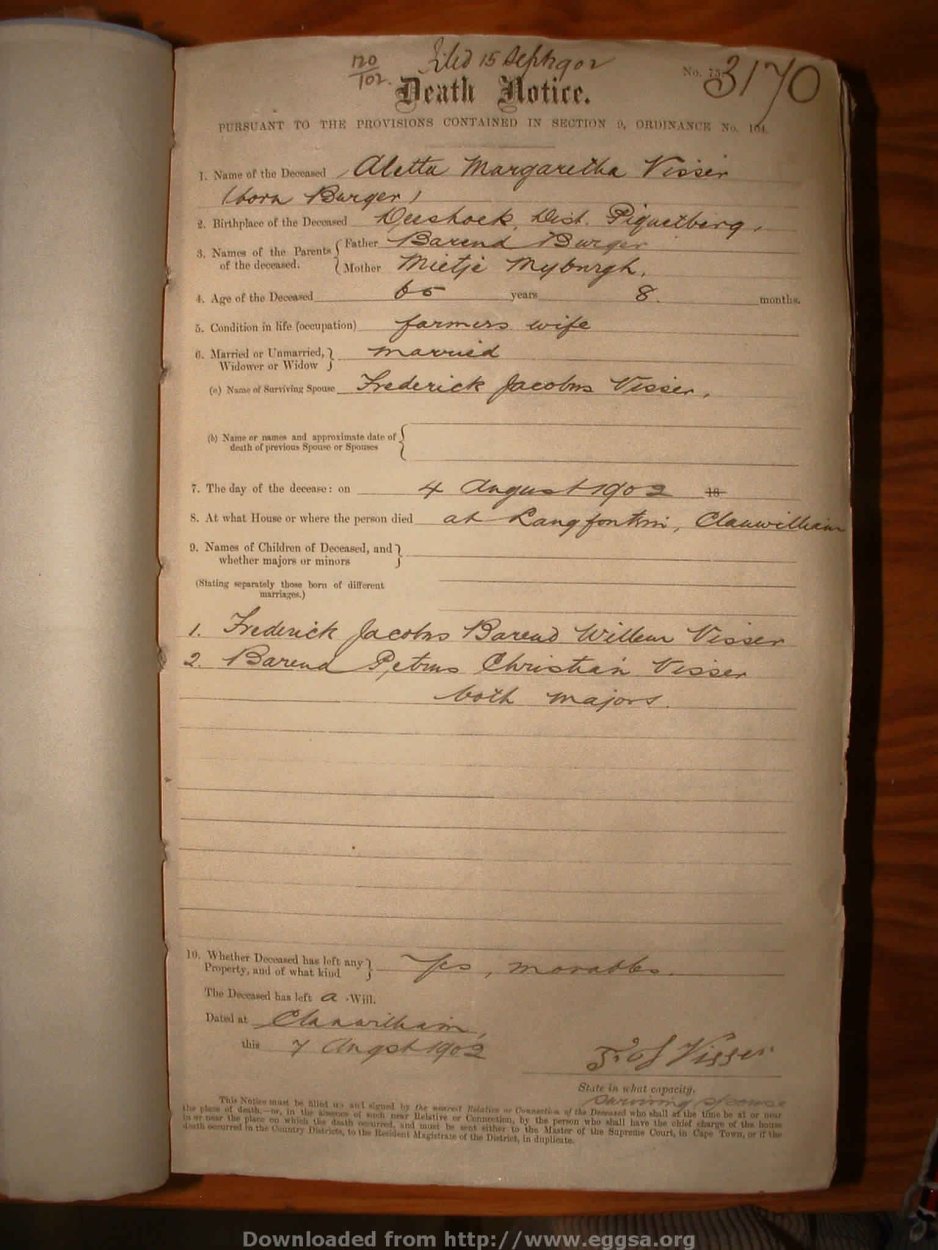 120
102.
Filed 15 Sept 1902
No. 3170
Death Notice.
PURSUANT TO THE PROVISIONS CONTAINED IN SECTION 9, ORDINANCE No. 104.
1. Name of the Deceased Aletta Margaretha Visser
(born Burger)
2. Birthplace of the Deceased Dist. Piquetberg,
3. Names of the Parents of the deceased. { Father Barend Burger
Mother Mietje Myburgh,
4. Age of the Deceased 65 years 8. months.
5. Condition in life (occupation) farmers wife
6. Married or Unmarried, Widower or Widow } married
(a) Name of Surviving Spouse Frederick Jacobus Visser,
(b) Name or names and approximate date of
death of previous Spouse or Spouses
7. The day of the decease: on 4 August 1902 18
8. At what House or where the person died at Langfontein, Clanwilliam
9. Names of Children of Deceased, and
whether majors or minors
(Stating separately those born of different
marriages.)
1. Frederick Jacobus Barend Willem Visser
2. Barend Petrus Christian Visser
both majors.
10. Whether Deceased has left any Property, and of what kind } Yes, movables.
The Deceased has left a Will.
Dated at Clanwilliam,
this 7 Augst 1902
F. J Visser
State in what capacity.
surviving spouse
This Notice must be filled up and signed by the nearest Relative or Connection of the Deceased who shall at the time be at or near
the place of death,—or, in the absence of such near Relative or Connection, by the person who shall have the chief charge of the house
in or near the place on which the death occurred, and must be sent either to the Master of the Supreme Court, in Cape Town, or if the
death occurred in the Country Districts, to the Resident Magistrate of the District, in duplicate.
Downloaded from http://www.eggsa.org